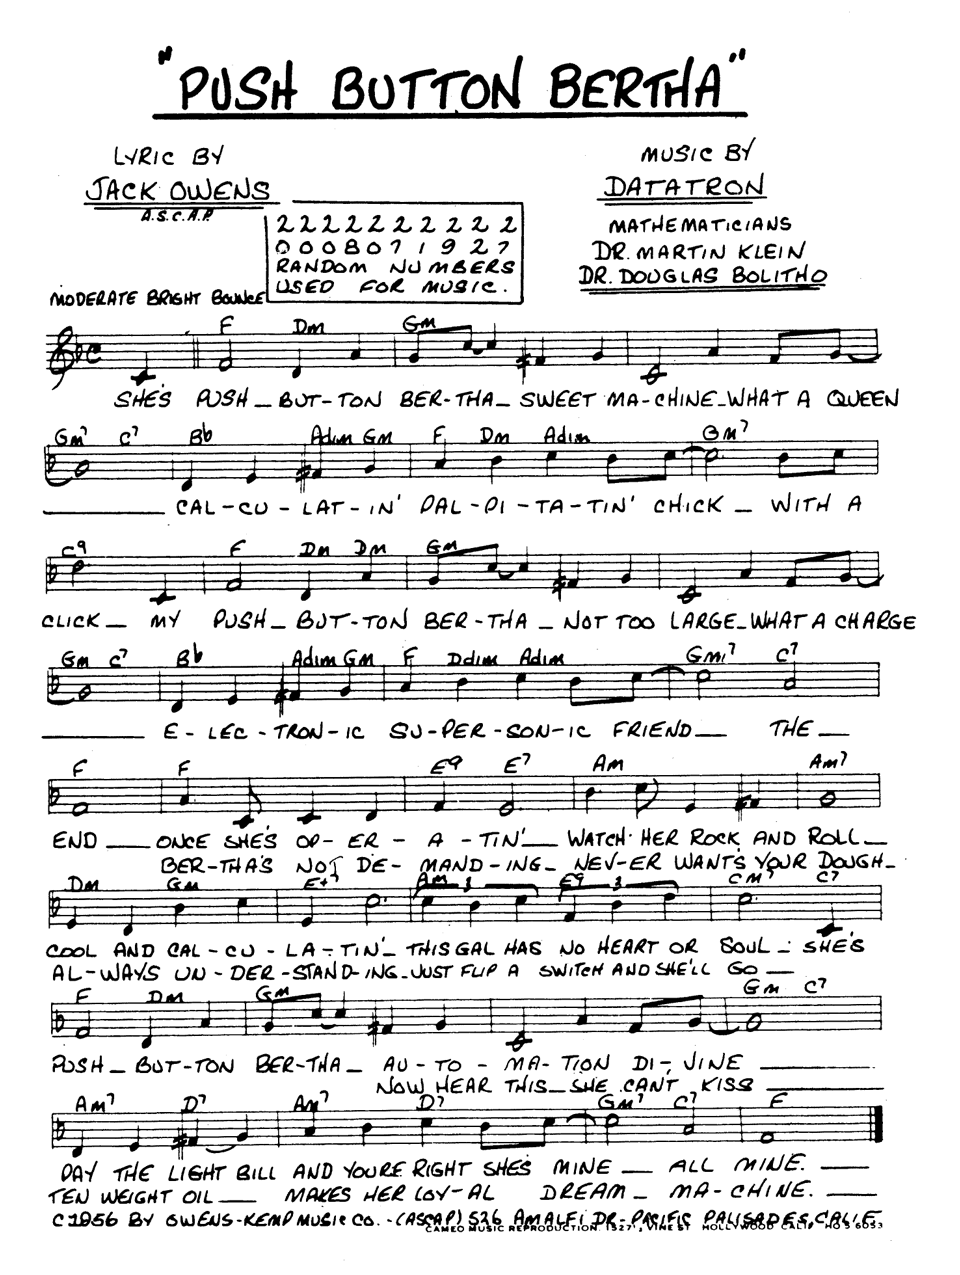 "PUSH BUTTON BERTHA"
LYRIC BY
JACK OWENS
A.S.C.A.P.
MUSIC BY
DATATRON
MATHEMATICIANS
DR. MARTIN KLEIN
DR. DOUGLAS BOLITHO
2 2 2 2 2 2 2 2 2 2
0 0 0 8 0 7 1 9 2 7
RANDOM NUMBERS
USED FOR MUSIC.
MODERATE BRIGHT BOUNCE
F Dm Gm
SHE'S PUSH_BUT-TON BER-THA_SWEET MA-CHINE_WHAT A QUEEN
Gm7 C7 Bb Adim Gm F Dm Adim Gm7
CAL-CU-LAT-IN' PAL-PI-TA-TIN' CHICK_WITH A
C9 F Dm Dm Gm
CLICK_MY PUSH_BUT-TON BER-THA_NOT TOO LARGE_WHAT A CHARGE
Gm C7 Bb Adim Gm F Ddim Adim Gmi7 C7
E-LEC-TRON-IC SU-PER-SON-IC FRIEND_THE_
F F E9 E7 Am Am7
END_ONCE SHE'S OP-ER-A-TIN'_WATCH HER ROCK AND ROLL_
BER-THA'S NOT DE-MAND-ING_NEV-ER WANTS YOUR DOUGH_
Dm Gm E+7 Am 3 E9 3 CM7 C7
COOL AND CAL-CU-LA-TIN'_THIS GAL HAS NO HEART OR SOUL_SHE'S
AL-WAYS UN-DER-STAND-ING_JUST FLIP A SWITCH AND SHE'LL GO_
F Dm Gm Gm C7
PUSH_BUT-TON BER-THA_AU-TO-MA-TION DI-VINE
NOW HEAR THIS_SHE CAN'T KISS
Am7 D7 Am7 D7 Gm7 C7 F
PAY THE LIGHT BILL AND YOURE RIGHT SHE'S MINE_ALL MINE._
TEN WEIGHT OIL_MAKES HER LOY-AL DREAM_MA-CHINE._
C 1956 BY OWENS-KEMP MUSIC CO.-(ASCAP) 526 AMALFI DR-PACIFIC PALISADES, CALIF.
CAMEO MUSIC REPRODUCTION, 1527 , VINE ST HOLLYWOOD CALIF